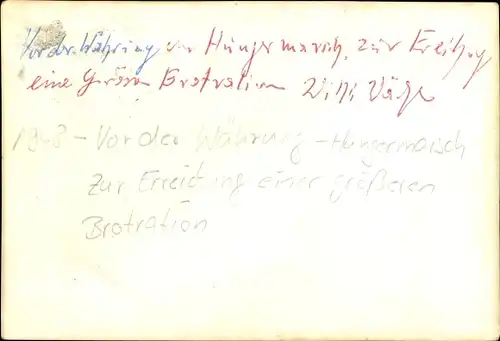 Vor der Währing Hungermarsch, zur Erreichug
eine Grösren Brotration Willi
1948 - Vor der Währung - Hungermarsch
Zur Erreichung einer größeren
Brotration